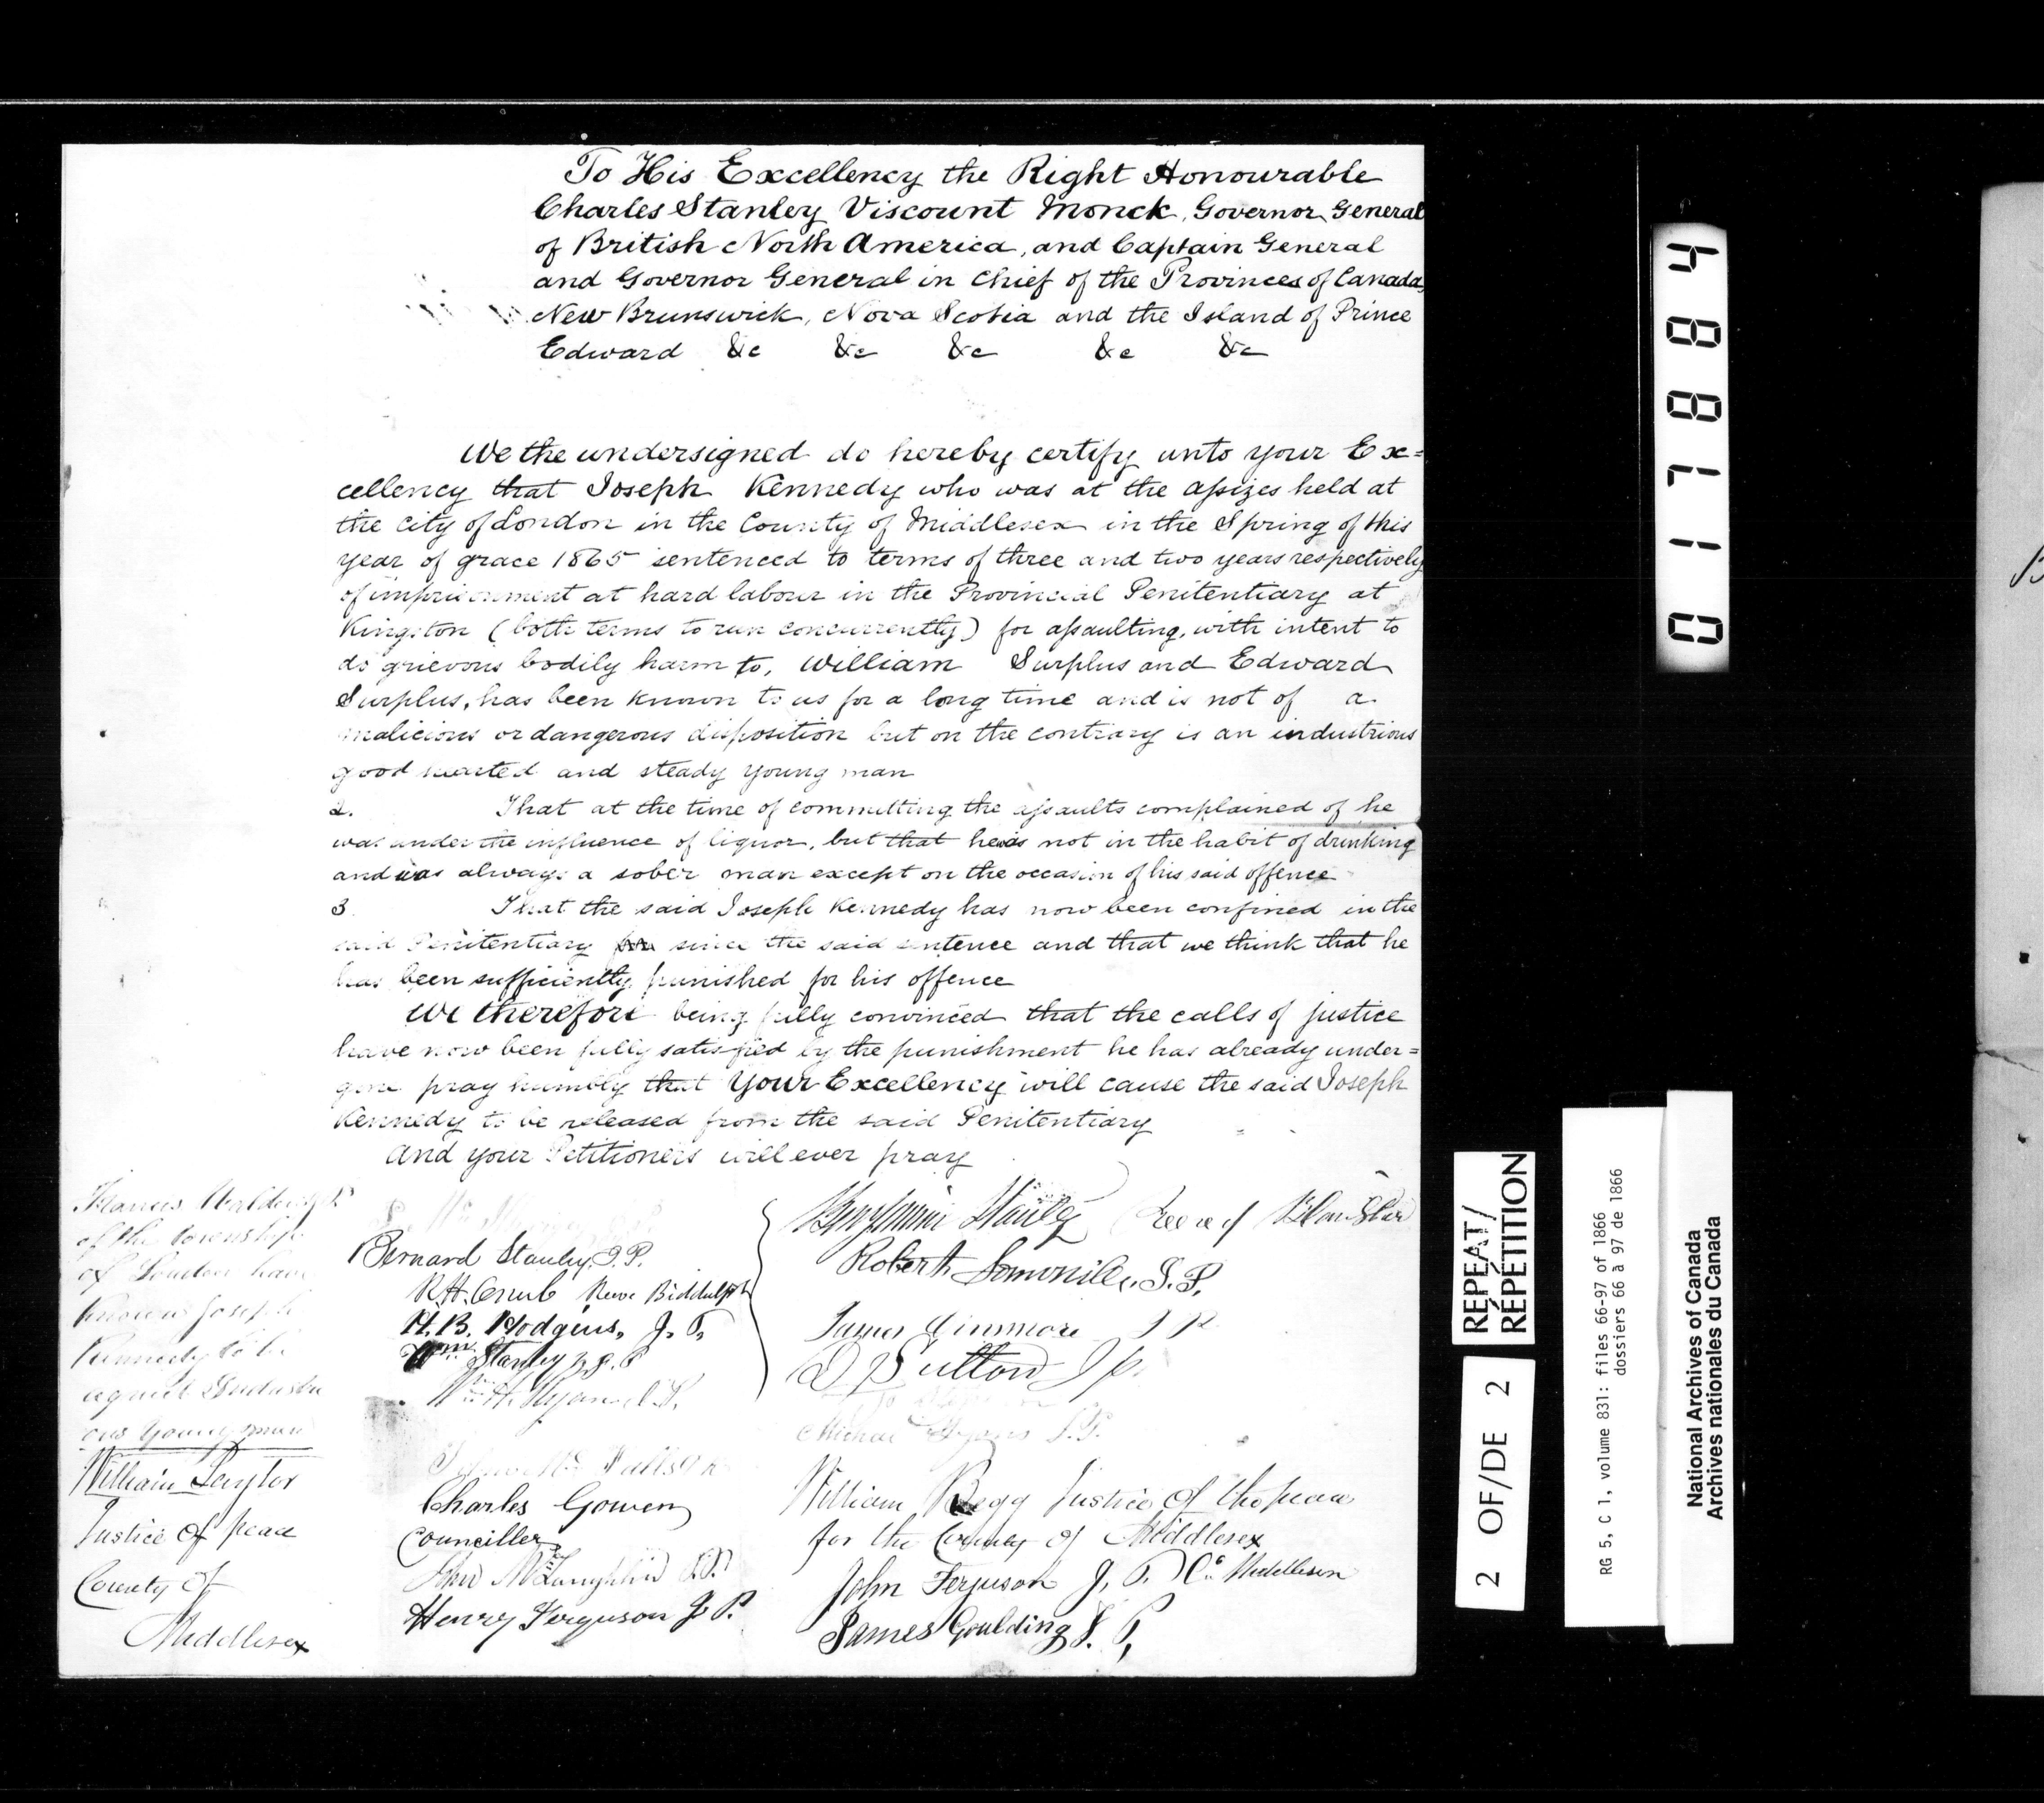 To His Excellency the Right Honourable
Charles Stanley Viscount Monck, Governor General
of British North America, and Captain General
and Governor General in Chief of the Provinces of Canada,
New Brunswick, Nova Scotia and the Island of Prince
Edward &c &c &c &c &c
We the undersigned do hereby certify unto your Ex=
cellency that Joseph Kennedy who was at the assizes held at
the City of London in the County of Middlesex in the Spring of this
year of grace 1865 sentenced to terms of three and two years respectively
of imprisonment at hard labour in the Provincial Penitentiary at
Kingston (both terms to run concurrently) for assaulting, with intent to
do grievous bodily harm to, William Surplus and Edward
Surplus, has been known to us for a long time and is not of a
malicious or dangerous disposition but on the contrary is an industrious
good hearted and steady young man
2. That at the time of committing the assaults complained of he
was under the influence of liquor, but that he is not in the habit of drinking
and was always a sober man except on the occasion of his said offence
3 That the said Joseph Kennedy has now been confined in the
said Penitentiary since the said sentence and that we think that he
has been sufficiently punished for his offence
We therefore being fully convinced that the calls of justice
have now been fully satisfied by the punishment he has already under=
gone pray humbly that Your Excellency will cause the said Joseph
Kennedy to be released from the said Penitentiary
And your Petitioners will ever pray
Benjamin Stanley Reeve of
Bernard Stanley, J.P.
Robert Somerville, J.P.
R.H. Reeve Biddulph
H.B. Hodgins, J.P.
James J P
Wm Stanley J.P.
D Sutton J p.
Wm H. Ryan J.P.
J.P.
Charles Gowen
Councillor
John McLaughlin J.P.
Henry Ferguson J.P.
William Begg Justice of the peace
for the County of Middlesex
John Ferguson J.P. Co. Middlesex
James Goulding J.P.
Francis
of the township
of London have
known Joseph
Kennedy to be
a quiet Industri
ous young man
William Taylor
Justice of peace
County of
Middlesex
017884
REPEAT/
RÉPÉTITION
2 OF/DE 2
RG 5, C 1, volume 831: files 66-97 of 1866
dossiers 66 à 97 de 1866
National Archives of Canada
Archives nationales du Canada